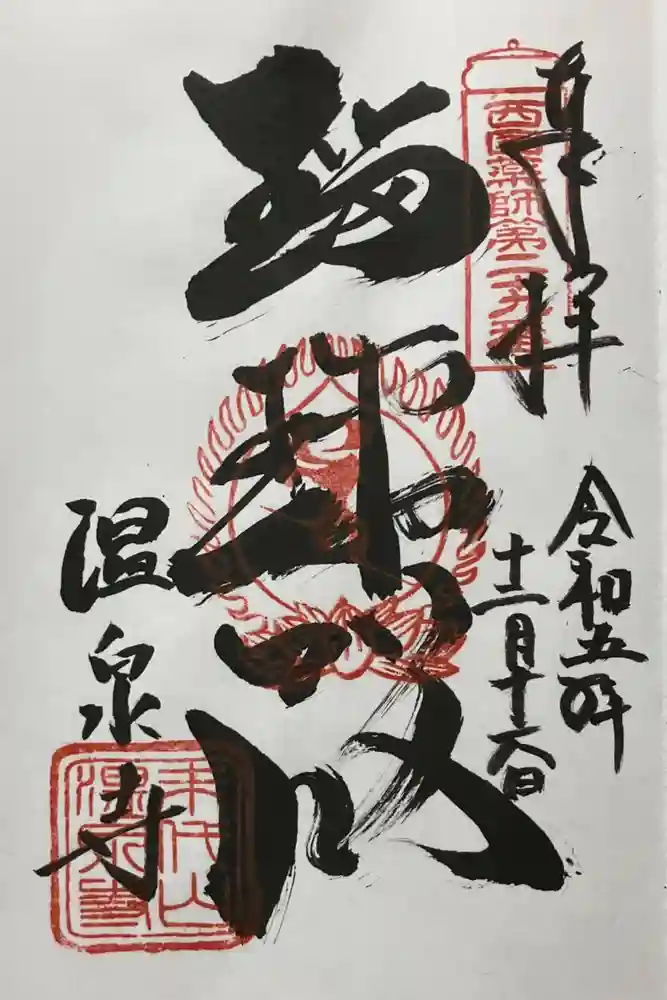 奉拝
西国薬師第二九番
令和五年
十二月十六日
瑠璃
温泉寺
末代山
温泉寺